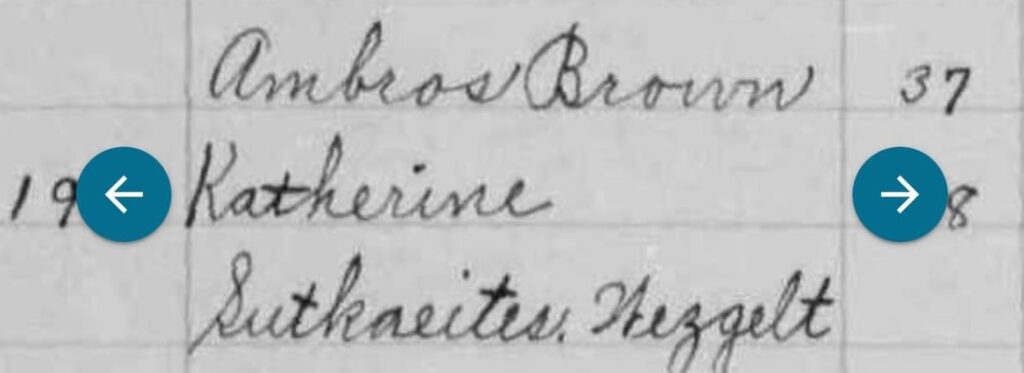 Ambros Brown 37
19 Katherine 8
Sutkaeites. Wezgelt